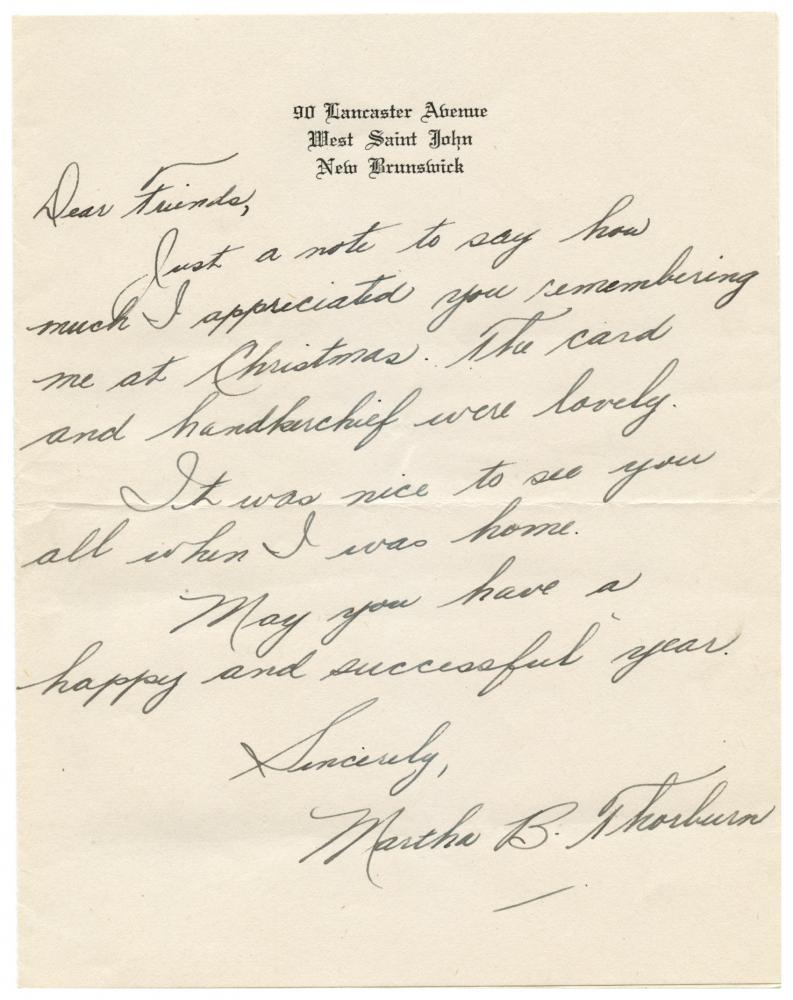 90 Lancaster Avenue
West Saint John
New Brunswick
Dear Friends,
Just a note to say how
much I appreciated you remembering
me at Christmas. The card
and handkerchief were lovely.
It was nice to see you
all when I was home.
May you have a
happy and successful year.
Sincerely,
Martha B. Thorburn